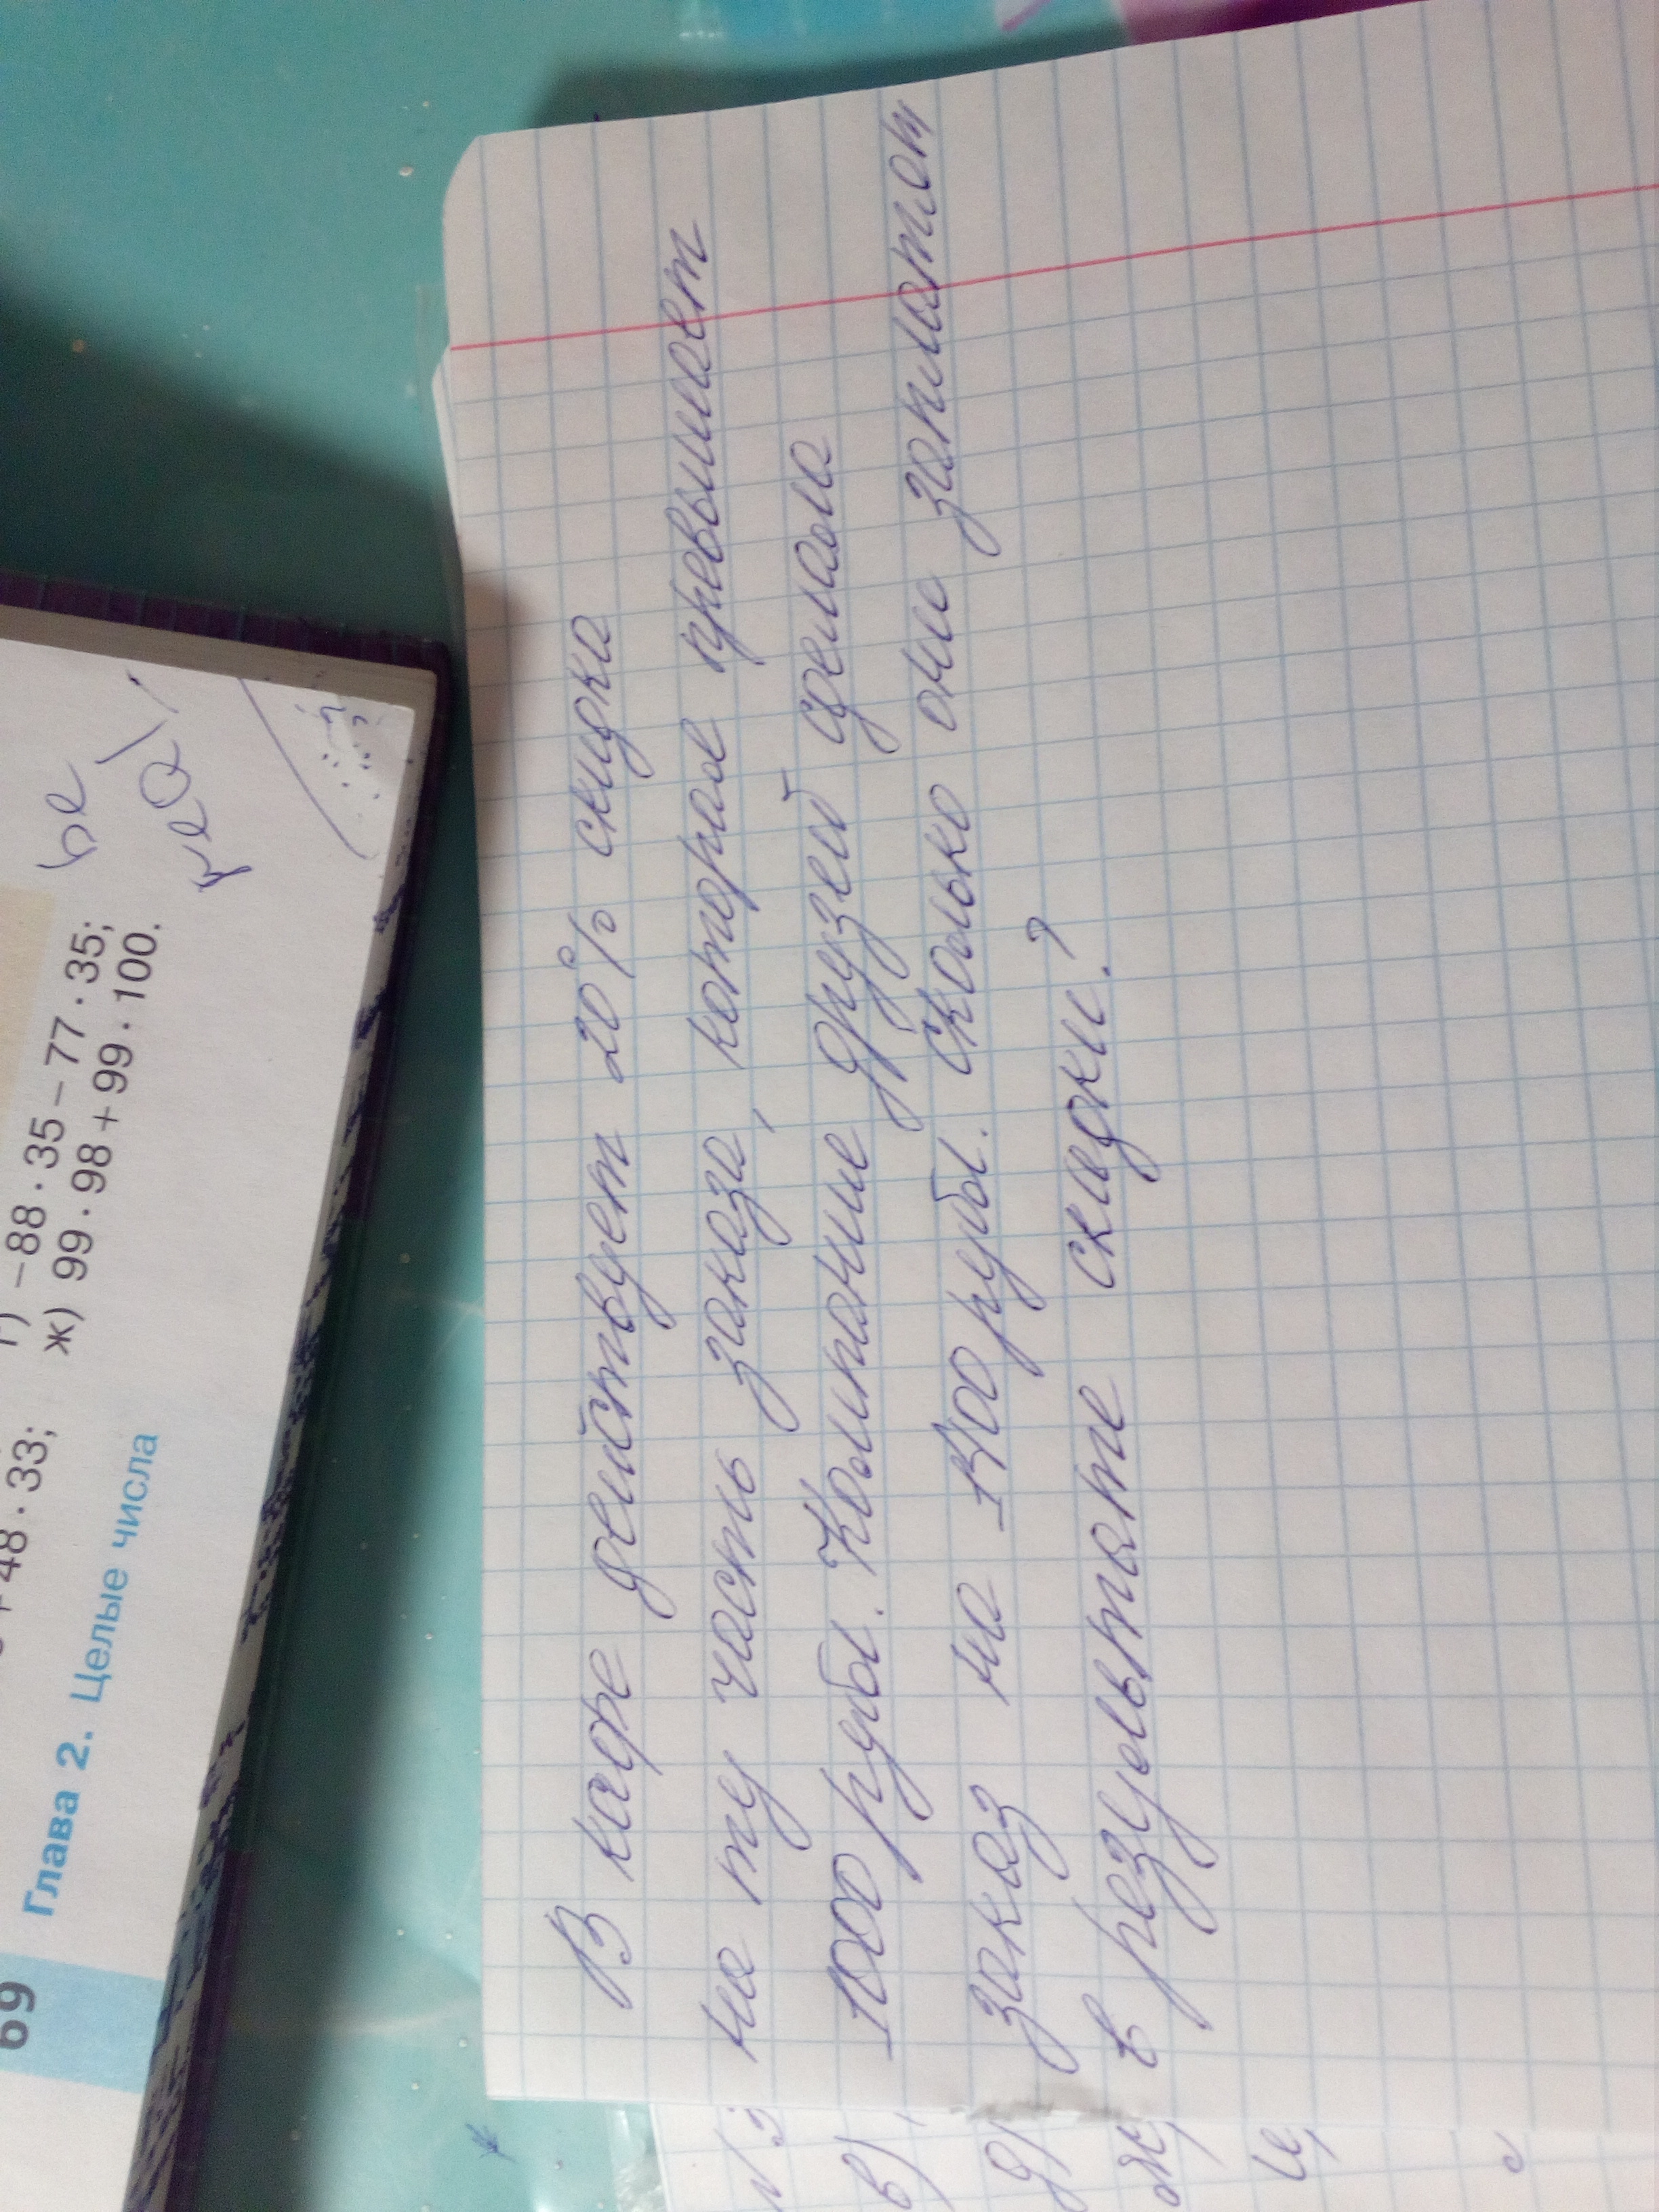 +48·33;
г) −88·35−77·35;
ж) 99·98+99·100.
69 Глава 2. Целые числа
В кафе действует 20% скидка
на ту часть заказа, которая превышает
1000 рубл. Компания друзей сделала
заказ на 1400 рубл. Сколько они заплатят
в результате скидки?